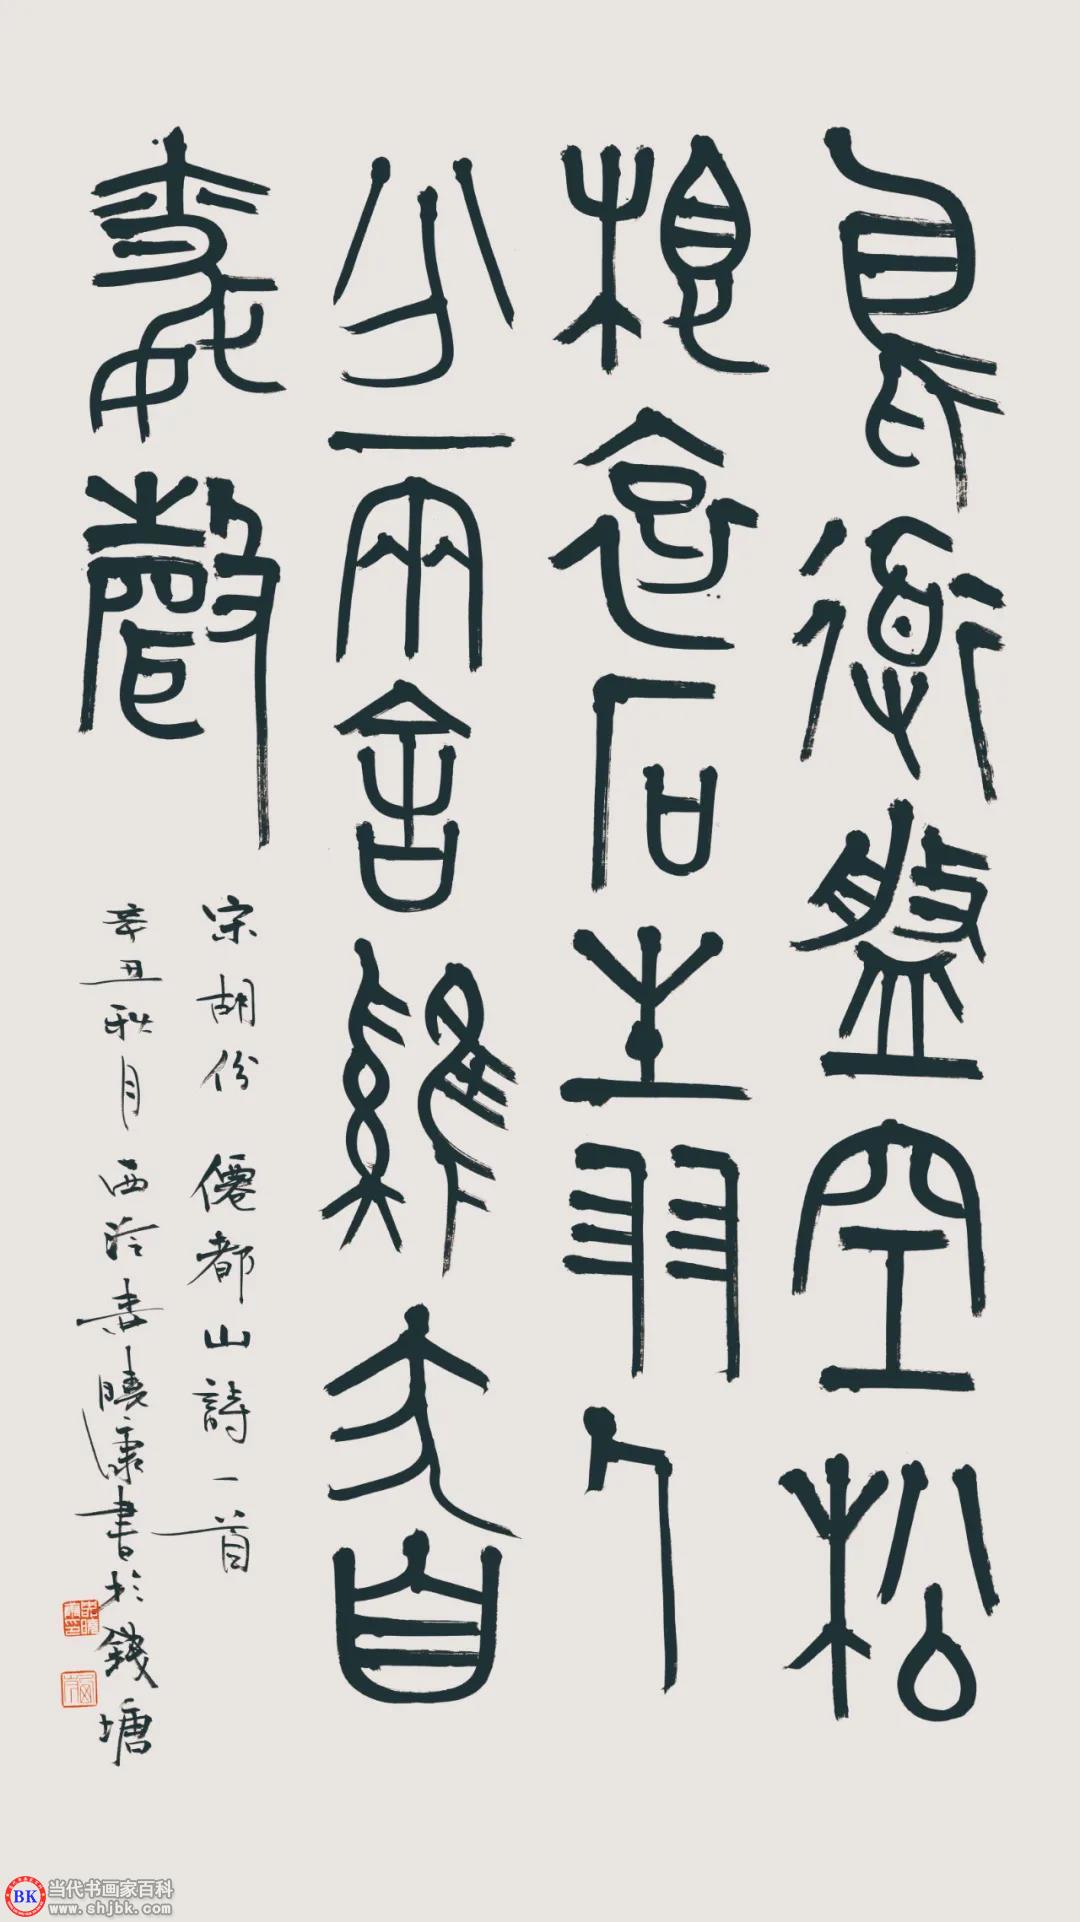 鳥道盤空松
根石生羽人
少一兩舍雞犬自
聲
宋胡份 僊都山詩一首
辛丑秋月西泠曉康書於錢塘
BK
当代书画家百科
www.shjbk.com